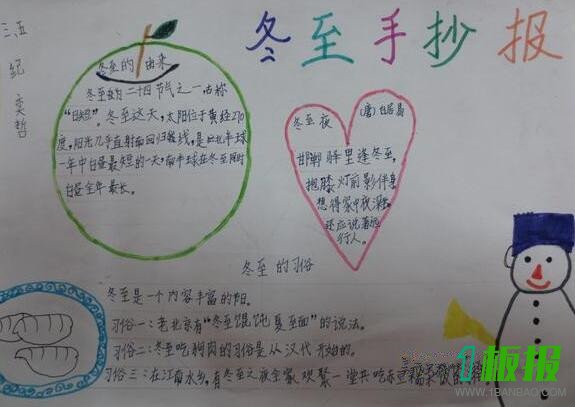 冬至手抄报
三.五
纪
奕哲
冬至的由来
冬至的二十四节气之一.古称
"日短"冬至这天,太阳位于黄经270
度,阳光几乎直射南回归线,是北半球
一年中白昼最短的一天,南半球在冬至同时
白昼全年最长。
冬至夜 (唐)白居易
邯郸驿里逢冬至,
抱膝灯前影伴身
想得家中夜深坐
还应说着远
行人。
冬至的习俗
冬至是一个内容丰富的节。
习俗一:老北京有"冬至馄饨夏至面"的说法。
习俗二:冬至吃狗肉的习俗是从汉代开始的。
习俗三:在江南水乡,有冬至之夜全家欢聚一堂共吃赤豆糯米饭
1板报
WWW.1BANBAO.COM